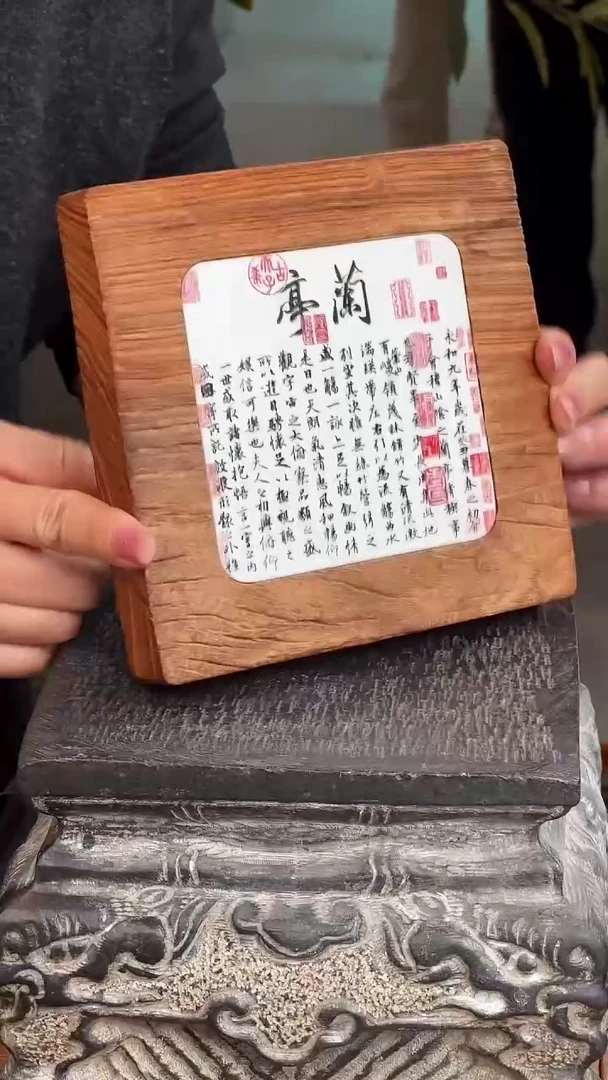 蘭亭
永和九年歲在癸丑暮春之初
會稽山陰之蘭亭脩禊事
賢畢至少長咸集此地
崇山
有峻領茂林脩竹又有清流激
湍暎帶左右引以為流觴曲水
列坐其次雖無絲竹管絃之
盛一觴一詠亦足以暢敘幽情
是日也天朗氣清惠風和暢仰
觀宇宙之大俯察品類之盛
所以遊目騁懷足以極視聽之
娛信可樂也夫人之相與俯仰
一世或取諸懷抱悟言一室之內
或因寄所託放浪形骸之外雖